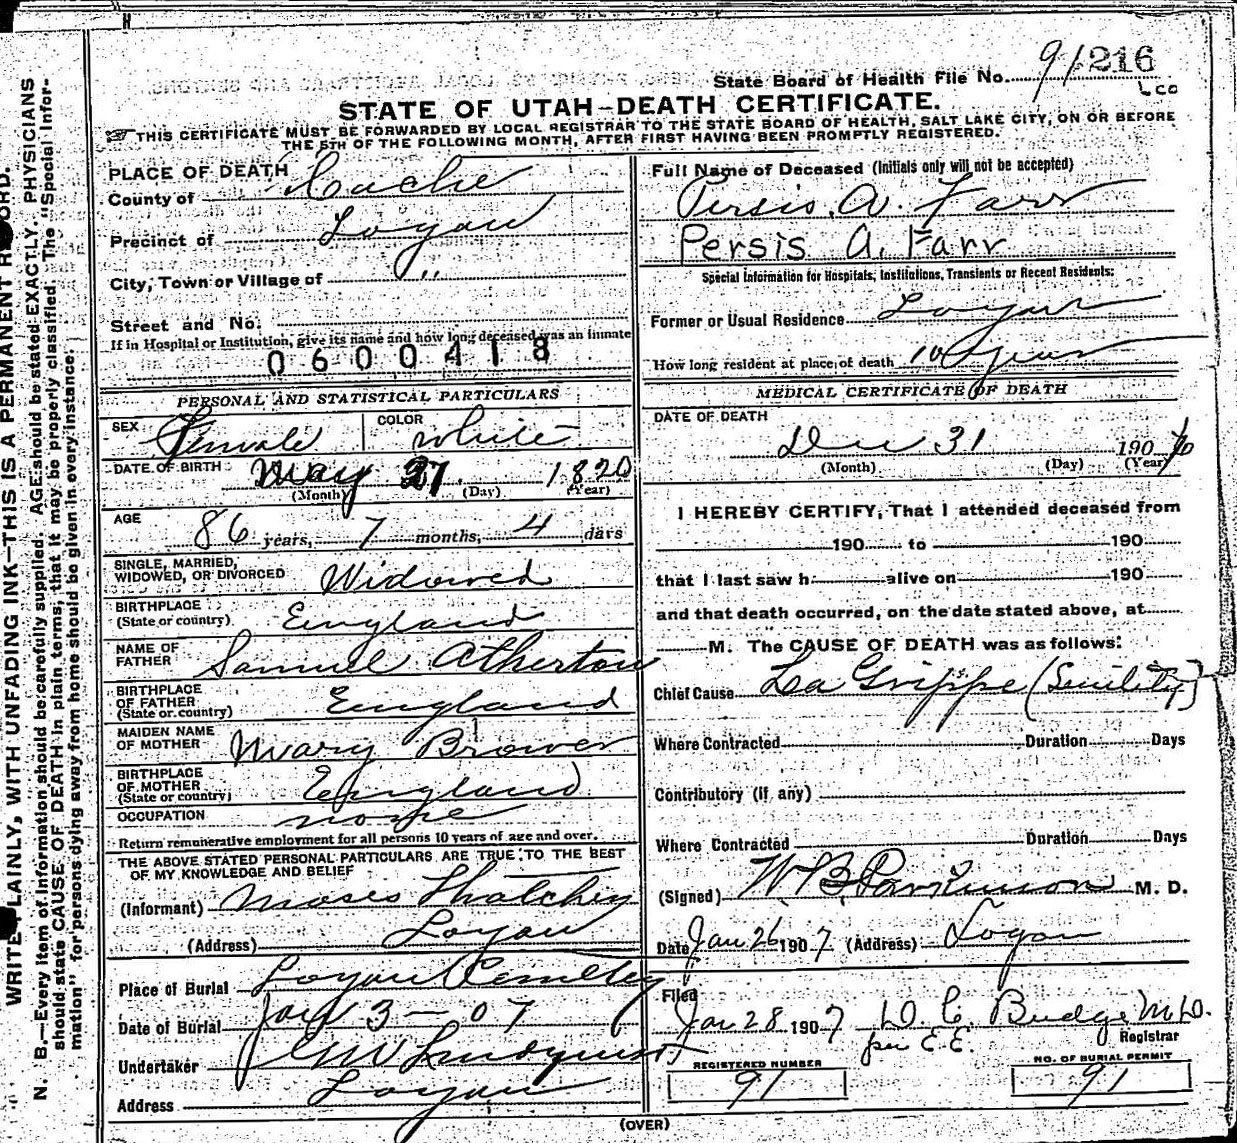 State Board of Health File No. 91 216
STATE OF UTAH–DEATH CERTIFICATE.
THIS CERTIFICATE MUST BE FORWARDED BY LOCAL REGISTRAR TO THE STATE BOARD OF HEALTH, SALT LAKE CITY, ON OR BEFORE
THE 5TH OF THE FOLLOWING MONTH, AFTER FIRST HAVING BEEN PROMPTLY REGISTERED.
WRITE PLAINLY, WITH UNFADING INK—THIS IS A PERMANENT RECORD.
N. B.—Every item of information should be carefully supplied. AGE should be stated EXACTLY. PHYSICIANS
should state CAUSE OF DEATH in plain terms, that it may be properly classified. The "Special Infor-
mation" for persons dying away from home should be given in every instance.
PLACE OF DEATH
County of Cache
Precinct of Logan
City, Town or Village of "
Street and No.
If in Hospital or Institution, give its name and how long deceased was an inmate
0600418
PERSONAL AND STATISTICAL PARTICULARS
SEX Female COLOR White
DATE OF BIRTH May 27 1820
(Month) (Day) (Year)
AGE 86 years, 7 months, 4 days
SINGLE, MARRIED,
WIDOWED, OR DIVORCED Widowed
BIRTHPLACE
(State or country) England
NAME OF
FATHER Samuel Atherton
BIRTHPLACE
OF FATHER
(State or country) England
MAIDEN NAME
OF MOTHER Mary Brower
BIRTHPLACE
OF MOTHER
(State or country) England
OCCUPATION none
Return remunerative employment for all persons 10 years of age and over.
THE ABOVE STATED PERSONAL PARTICULARS ARE TRUE TO THE BEST
OF MY KNOWLEDGE AND BELIEF
(Informant) Moses Thatcher
(Address) Logan
Place of Burial Logan Cemetery
Date of Burial Jan 3 – 07
Undertaker Lindquist
Address Logan
Full Name of Deceased (Initials only will not be accepted)
Persis A. Farr
Persis A. Farr
Special Information for Hospitals, Institutions, Transients or Recent Residents:
Former or Usual Residence Logan
How long resident at place of death 10 years
MEDICAL CERTIFICATE OF DEATH
DATE OF DEATH
Dec 31 1906
(Month) (Day) (Year)
I HEREBY CERTIFY, That I attended deceased from
190 to 190
that I last saw h alive on 190
and that death occurred, on the date stated above, at
M. The CAUSE OF DEATH was as follows:
Chief Cause La Grippe (Senility)
Where Contracted Duration Days
Contributory (if any)
Where Contracted Duration Days
(Signed) W B Parkinson M. D.
Date Jan 26 1907 (Address) Logan
Filed
Jan 28 1907 D. C. Budge M.D.
per E.E. Registrar
REGISTERED NUMBER NO. OF BURIAL PERMIT
91 91
(OVER)